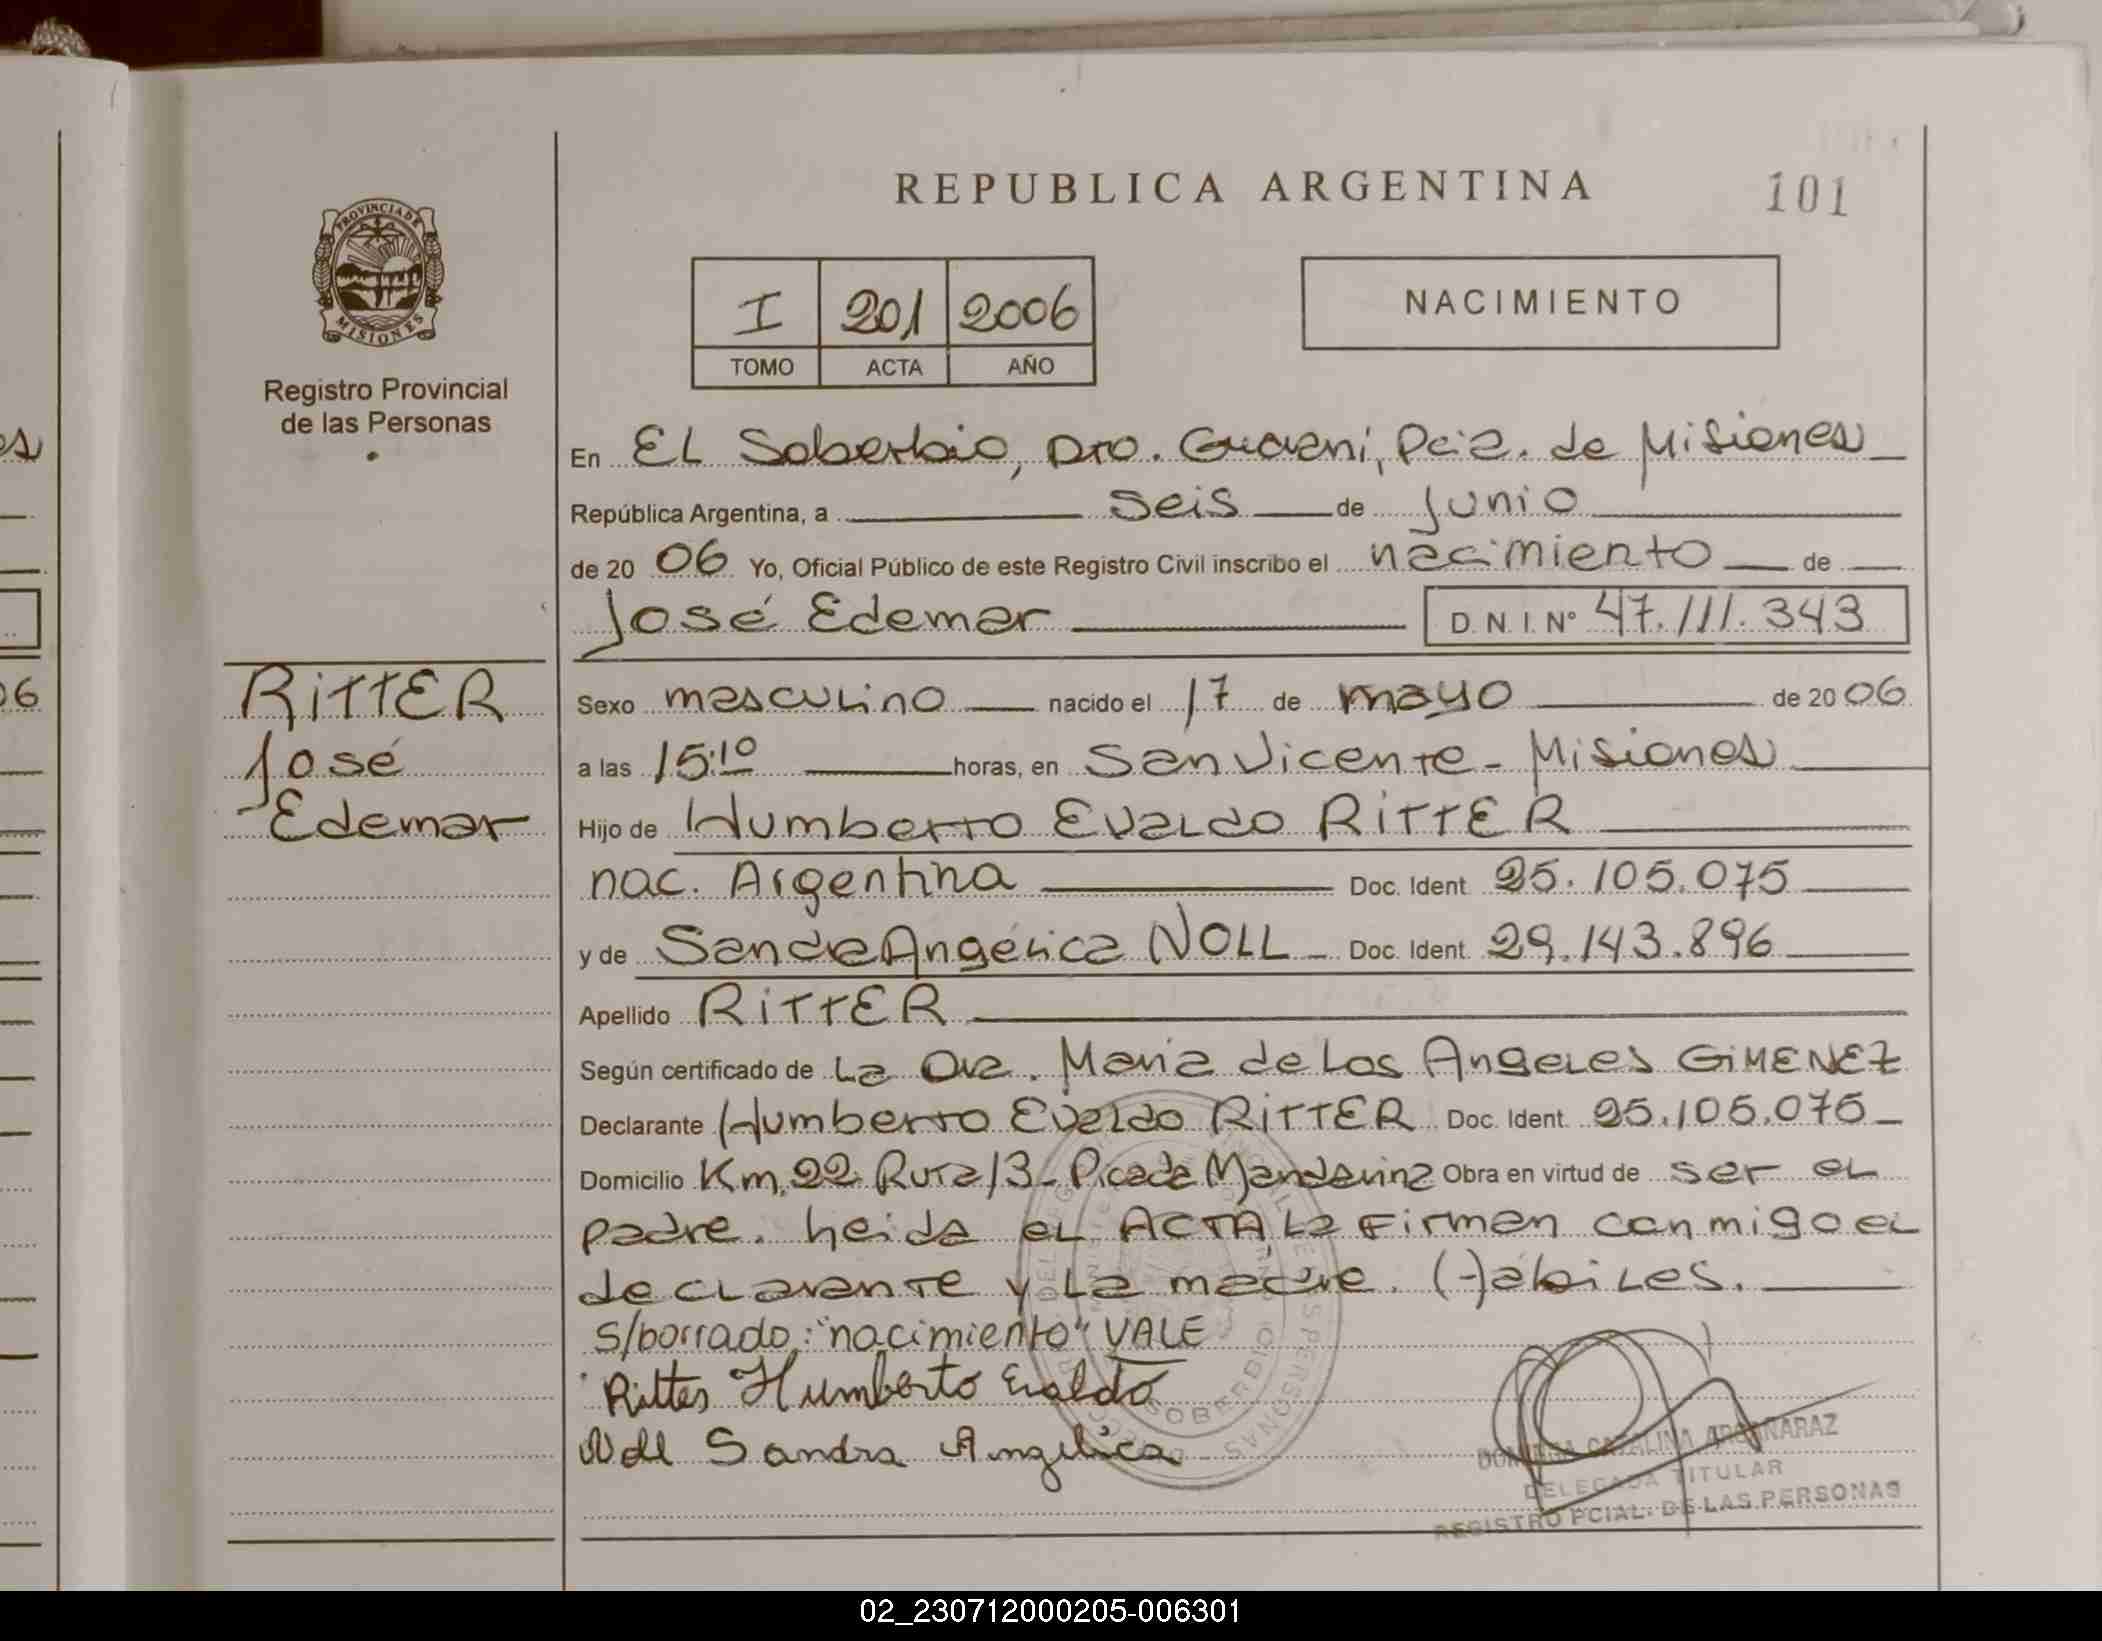 REPUBLICA ARGENTINA
101
PROVINCIA DE
MISIONES
Registro Provincial
de las Personas
I 201 2006
TOMO ACTA AÑO
NACIMIENTO
En EL Soberbio, Dto. Guarani, Pcia. de Misiones
República Argentina, a seis de junio
de 20 06 Yo, Oficial Público de este Registro Civil inscribo el nacimiento de
José Edemar D.N.I. Nº 47.111.343
RITTER
José
Edemar
Sexo masculino nacido el 17 de mayo de 20 06
a las 15:10 horas, en San Vicente - Misiones
Hijo de Humberto Evaldo RITTER
nac. Argentina Doc. Ident. 25.105.075
y de Sandra Angélica NOLL Doc. Ident. 29.143.896
Apellido RITTER
Según certificado de La Dra. Maria de Los Angeles GIMENEZ
Declarante Humberto Evaldo RITTER Doc. Ident. 25.105.075
Domicilio Km. 22 Ruta 13 - Picada Mandarina Obra en virtud de ser el
padre. heida el ACTA, La Firman conmigo el
declarante y La madre. Hábiles.
S/borrado: "nacimiento" VALE
Ritter Humberto Evaldo
Noll Sandra Angelica
SOBERBIO
CATALINA
DELEGADA TITULAR
REGISTRO PCIAL. DE LAS PERSONAS
02_230712000205-006301